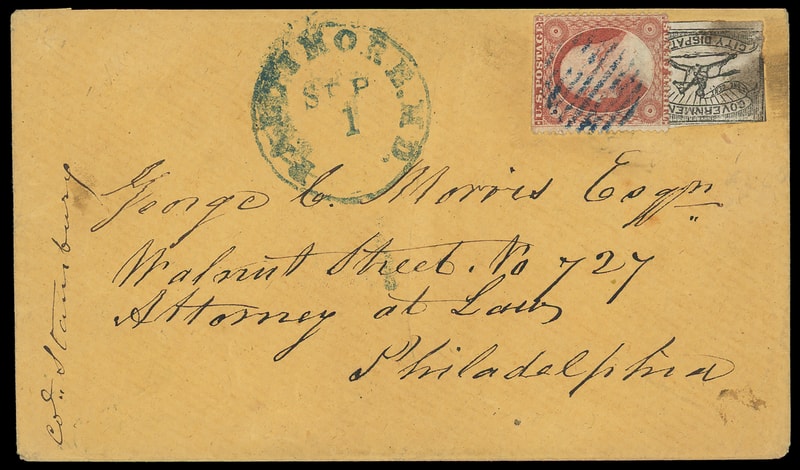 BALTIMORE, MD.
SEP
1
U.S. POSTAGE
GOVERNMENT
CITY DISPATCH
George C. Morris Esqr
Walnut Street. No 727
Attorney at Law
Philadelphia
Col Stansbury